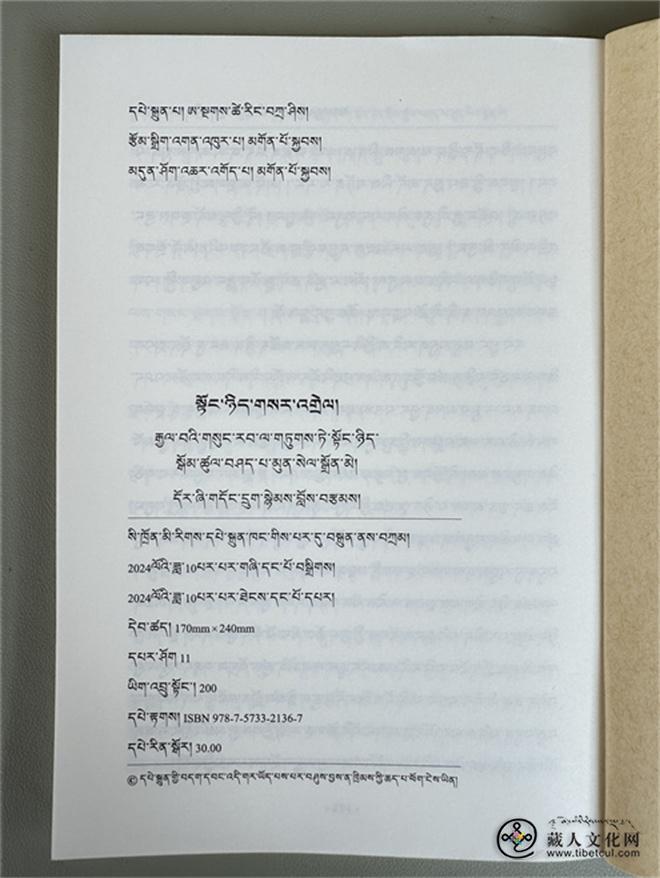 དཔེ་སྐྲུན་པ། ཨ་སྔགས་ཚེ་རིང་བཀྲ་ཤིས།
རྩོམ་སྒྲིག་འགན་འཁུར་པ། མགོན་པོ་སྐྱབས།
མདུན་ཤོག་འཆར་འགོད་པ། མགོན་པོ་སྐྱབས།
སྟོང་ཉིད་གསར་འགྲེལ།
རྒྱལ་བའི་གསུང་རབ་ལ་གཏུགས་ཏེ་སྟོང་ཉིད་
སྒོམ་ཚུལ་བཤད་པ་མུན་སེལ་སྒྲོན་མེ།
དོར་ཞི་གདོང་དྲུག་སྙེམས་བློས་བརྩམས།
སི་ཁྲོན་མི་རིགས་དཔེ་སྐྲུན་ཁང་གིས་པར་དུ་བསྐྲུན་ནས་བཀྲམ།
2024ལོའི་ཟླ་10པར་པར་གཞི་དང་པོ་བསྒྲིགས།
2024ལོའི་ཟླ་10པར་པར་ཐེངས་དང་པོ་དཔར།
དེབ་ཚད། 170mm×240mm
དཔར་ཤོག 11
ཡིག་འབྲུ་སྟོང་། 200
དཔེ་རྟགས། ISBN 978-7-5733-2136-7
དཔེ་རིན་སྒོར། 30.00
© དཔེ་སྐྲུན་གྱི་བདག་དབང་འདི་གར་ཡོད་པས་པར་བཤུས་བྱས་ན་ཁྲིམས་ཀྱི་ཆད་པ་ཕོག་ངེས་ཡིན།
藏人文化网
www.tibetcul.com